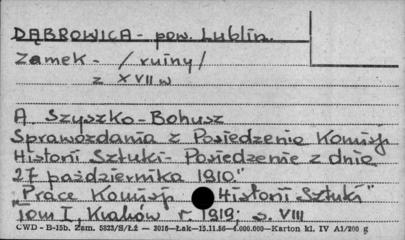 DĄBROWICA - pow. Lublin.
Zamek - /ruiny/
z XVII w
A. Szyszko-Bohusz
Sprawozdania z Posiedzenia Komisji
Historii Sztuki - Posiedzenie z dnia
27 października 1910."
"Prace Komisji Historii Sztuki"
Tom I, Kraków r. 1919; s. VIII
CWD - B-15b. Zam. 5823/S/Łź — 3016—Łak—15.11.56—4.000.000—Karton kl. IV A1/200 g